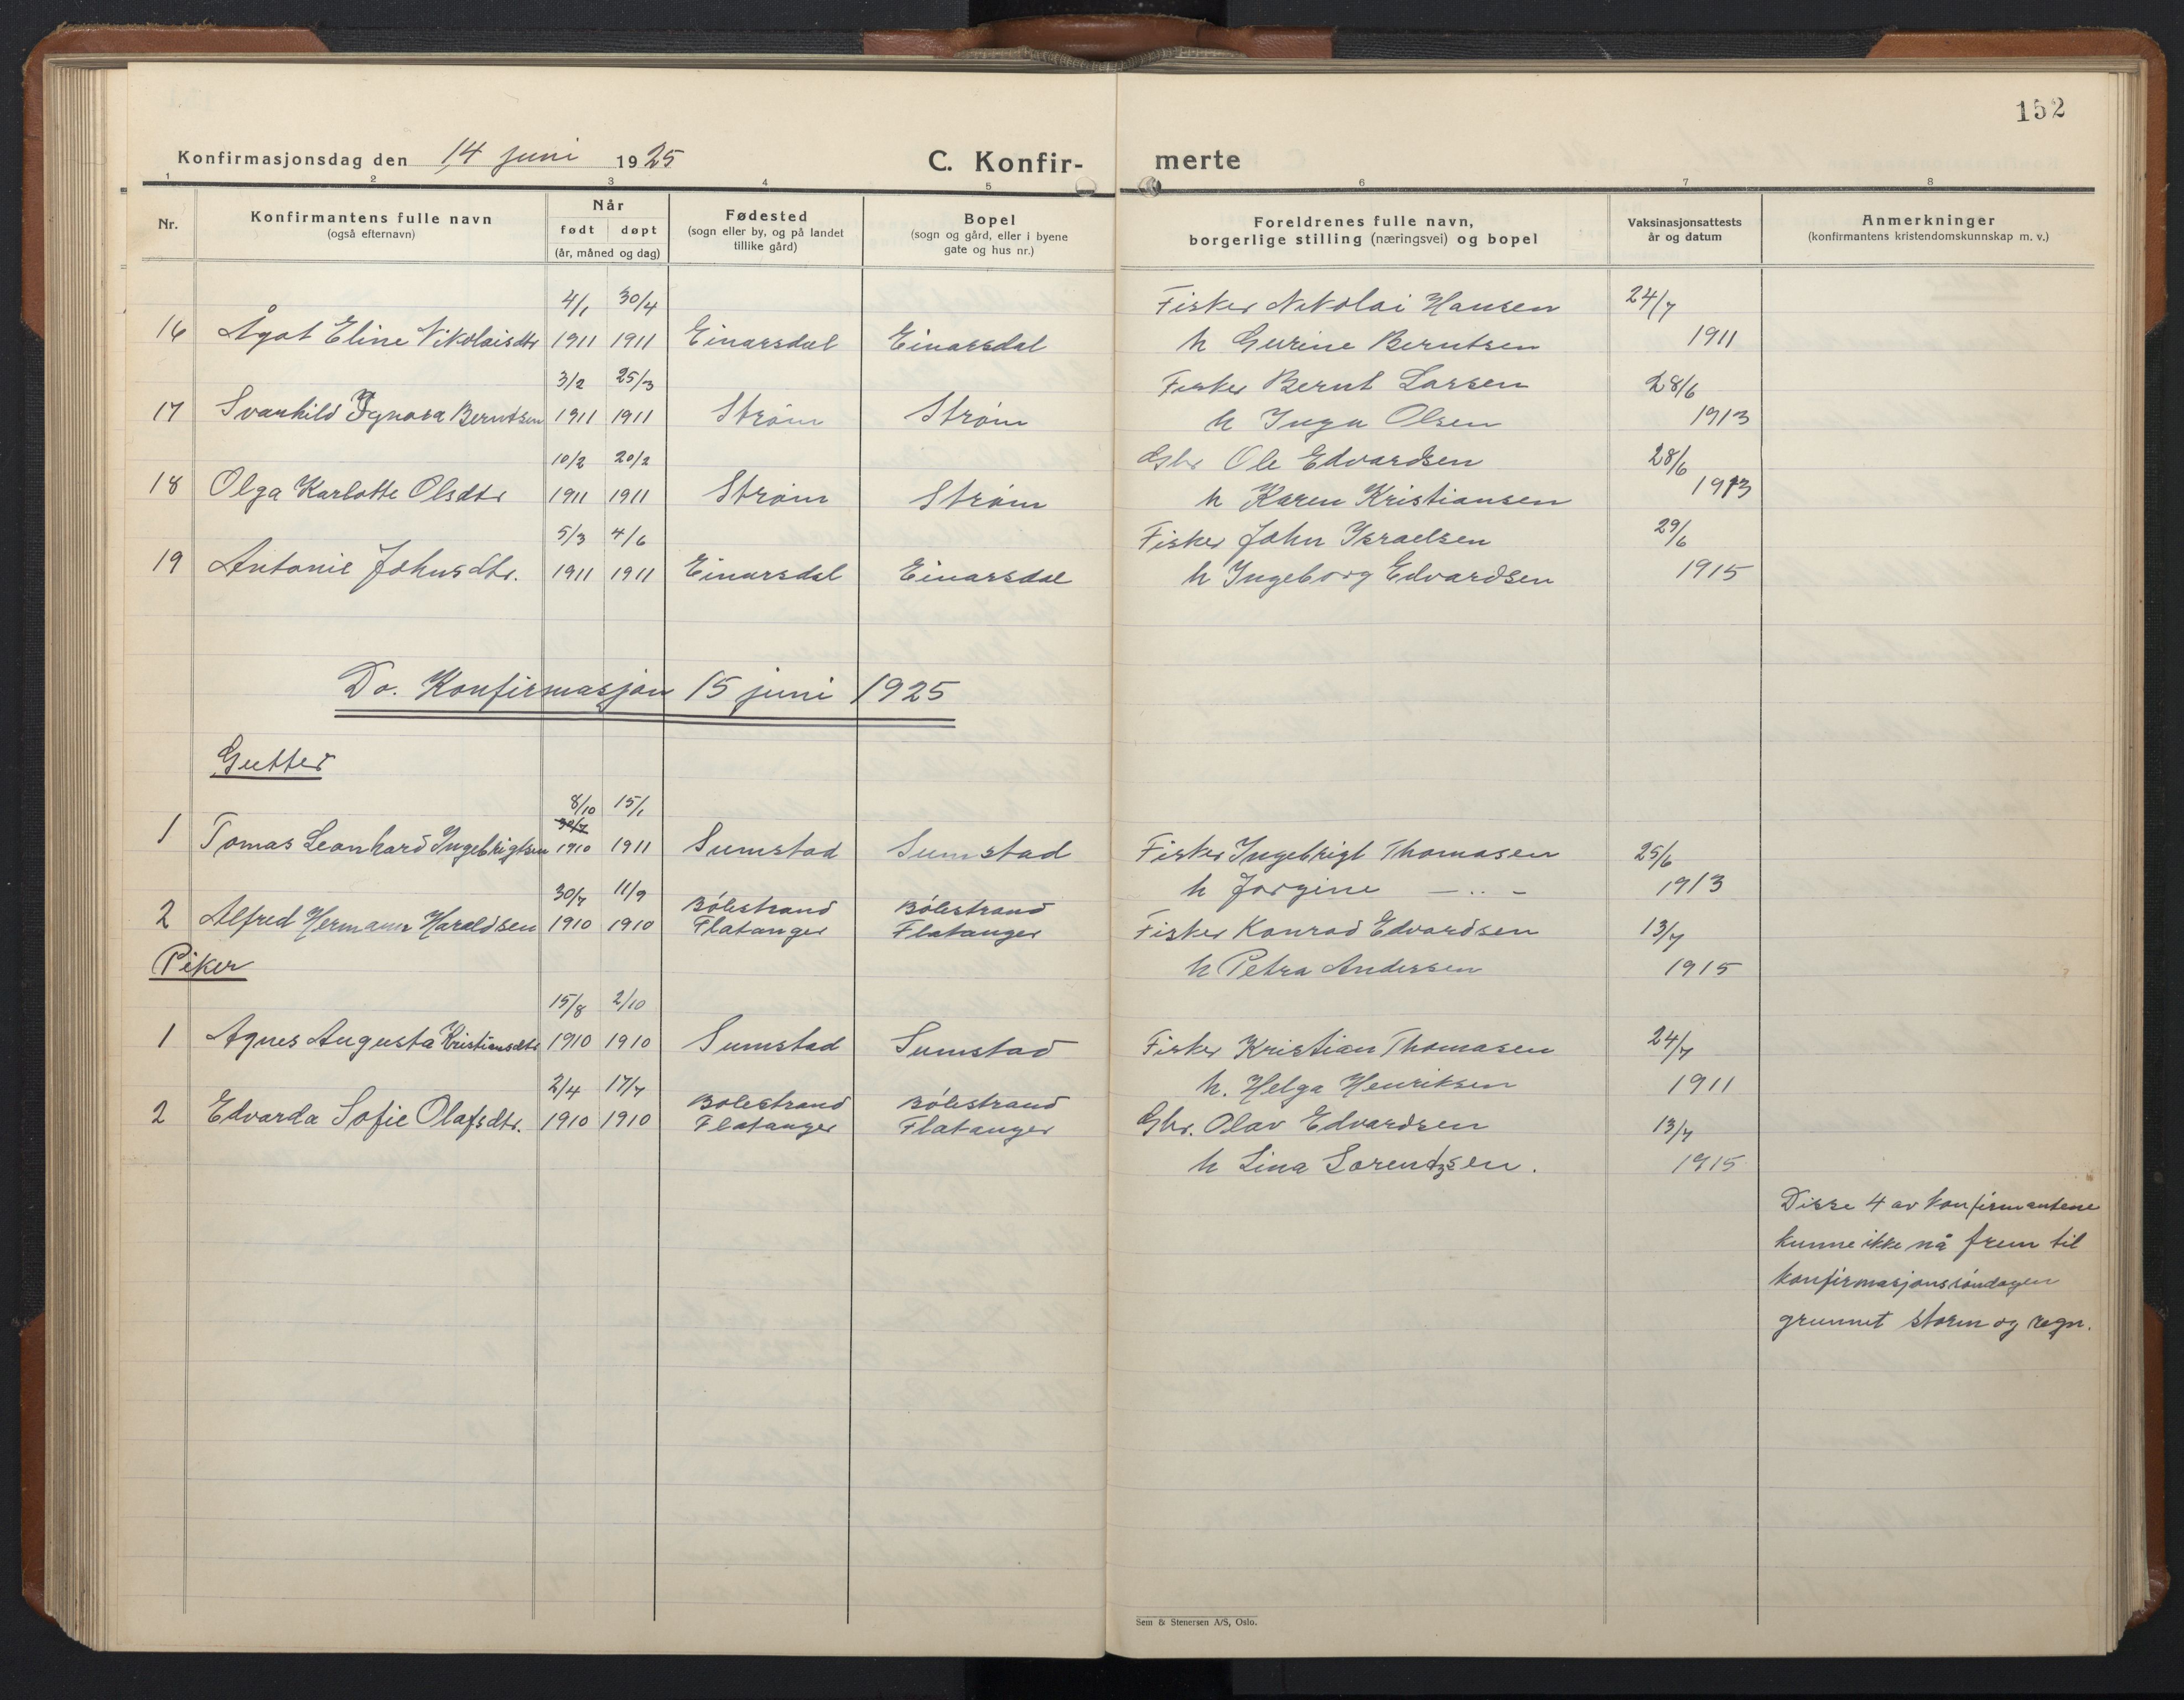 152
Konfirmasjonsdag den 14 juni 1925
C. Konfir-
merte
1 2 3 4 5 6 7 8
Nr.
Konfirmantens fulle navn
(også efternavn)
Når
født døpt
(år, måned og dag)
Fødested
(sogn eller by, og på landet
tillike gård)
Bopel
(sogn og gård, eller i byene
gate og hus nr.)
Foreldrenes fulle navn,
borgerlige stilling (næringsvei) og bopel
Vaksinasjonsattests
år og datum
Anmerkninger
(konfirmantens kristendomskunnskap m. v.)
4/1 30/4 Fisker Nikolai Hansen 24/7
16 Ågot Eline Nikolaisdtr 1911 1911 Einarsdal Einarsdal h Gurine Berntsen 1911
3/2 25/3 Fisker Bernt Larsen 28/6
17 Svanhild Ignora Berntsen 1911 1911 Strøm Strøm h Inga Olsen 1913
10/2 20/2 Gbr Ole Edvardsen 28/6
18 Olga Karlotte Olsdtr 1911 1911 Strøm Strøm h Karen Kristiansen 1913
5/3 4/6 Fisker John Israelsen 29/6
19 Antonie Johnsdtr. 1911 1911 Einarsdal Einarsdal h Ingeborg Edvardsen 1915
Do. Konfirmasjon 15 juni 1925
Gutter
8/10 15/1
30/7
1 Tomas Leonhard Ingebrigtsen 1910 1911 Sumstad Sumstad Fisker Ingebrigt Thomasen 25/6
h Jørgine — .. — 1913
30/7 11/9 Bölestrand Bölestrand
2 Alfred Hermann Haraldsen 1910 1910 Flatanger Flatanger Fisker Konrad Edvardsen 13/7
Piker h Petra Andersen 1915
15/8 2/10
1 Agnes Augusta Kristiansdtr 1910 1910 Sumstad Sumstad Fisker Kristian Thomasen 24/7
h. Helga Henriksen 1911
2/4 17/7 Bölestrand Bölestrand
2 Edvarda Sofie Olafsdtr. 1910 1910 Flatanger Flatanger Gbr. Olav Edvardsen 13/7
h Lina Lorentzsen. 1915
Disse 4 av konfirmantene
kunne ikke nå frem til
konfirmasjonssöndagen
grunnet storm og regn.
Sem & Stenersen A/S, Oslo.